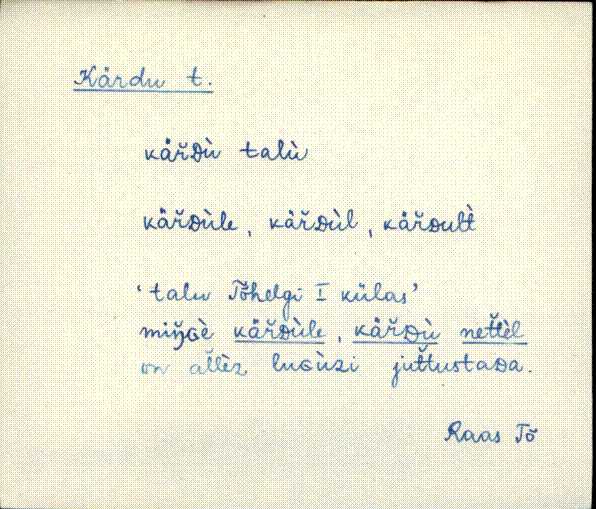 Kårdu t.
kåřᴅù talù
kåřᴅùle, kåřᴅùl, kåřᴅult̀
'talu Tõhelgi I külas'
miŋ̆ɢè kåřᴅùle, kåřᴅù net̆t̆èl
on al̆l̆èz luɢùzi jut̆t̆ustaᴅa.
Raas Tõ